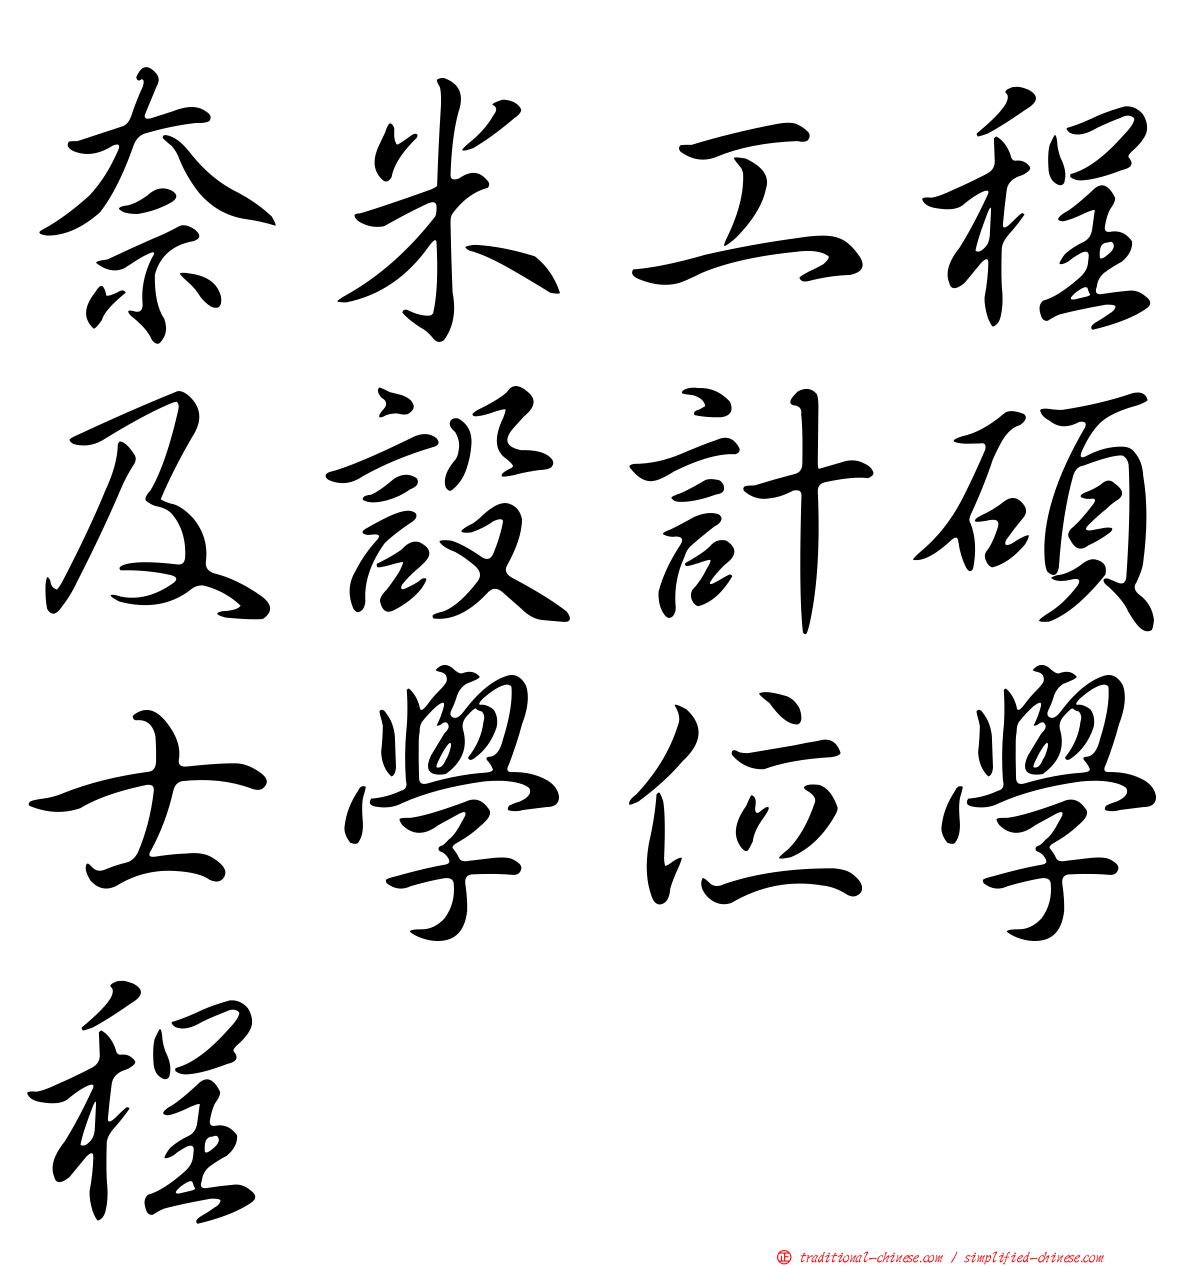 奈米工程
及設計碩
士學位學
程
正 traditional-chinese.com / simplified-chinese.com